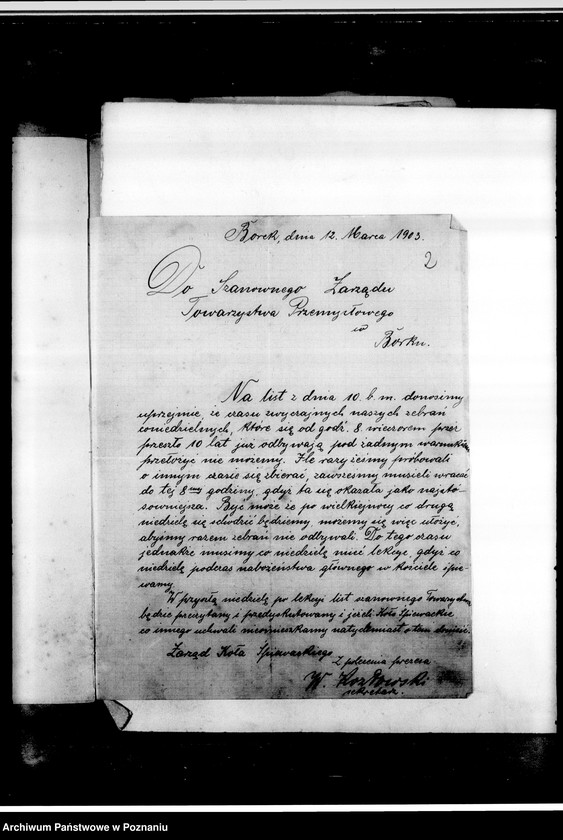 Borek, dnia 12. Marca 1903.
2
Do Szanownego Zarządu
Towarzystwa Przemysłowego
w
Borku.
Na list z dnia 10. b. m. donosimy
uprzejmie, że czasu zwyczajnych naszych zebrań
coniedzielnych, które się od godź. 8. wieczorem przez
przeszło 10 lat już odbywają pod żadnym warunkiem
przełożyć nie możemy. Ile razyśmy próbowali
o innym czasie się zbierać, zawsześmy musieli wracać
do tej 8mej godziny, gdyż ta się okazała jako najsto-
sowniejsza. Być może że po wielkiejnocy co drugą
niedzielę się schodzić będziemy, możemy się więc ułożyć,
abyśmy razem zebrań nie odbywali. Do tego czasu
jednakże musimy co niedzielę mieć lekcye, gdyż co
niedzielę podczas nabożeństwa głównego w kościele śpie-
wamy.
W przyszłą niedzielę po lekcyi list szanownego Towarzystwa
będzie przeczytany i przedyskutowany i jeżeli Koło Śpiewackie
co innego uchwali nieomieszkamy natychmiast o tem donieść.
Zarząd Koła Śpiewackiego
Z polecenia prezesa
W. Kozłowski
sekretarz.
Archiwum Państwowe w Poznaniu